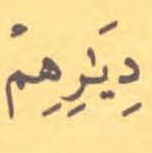 دِيَٰرِهِمْ